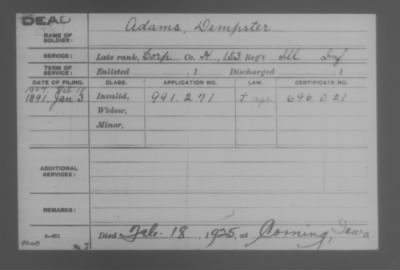 DEAD
NAME OF SOLDIER: Adams, Dempster
SERVICE: Late rank, Corp Co. H, 153 Reg't Ill Inf
TERM OF SERVICE: Enlisted , 1 Discharged , 1
DATE OF FILING. CLASS. APPLICATION NO. LAW. CERTIFICATE NO.
1891, Jan. 3 Invalid, 991.271 696 321
Widow,
Minor,
ADDITIONAL SERVICES:
REMARKS:
Died Feb. 18, 1925, at Corning, Iowa